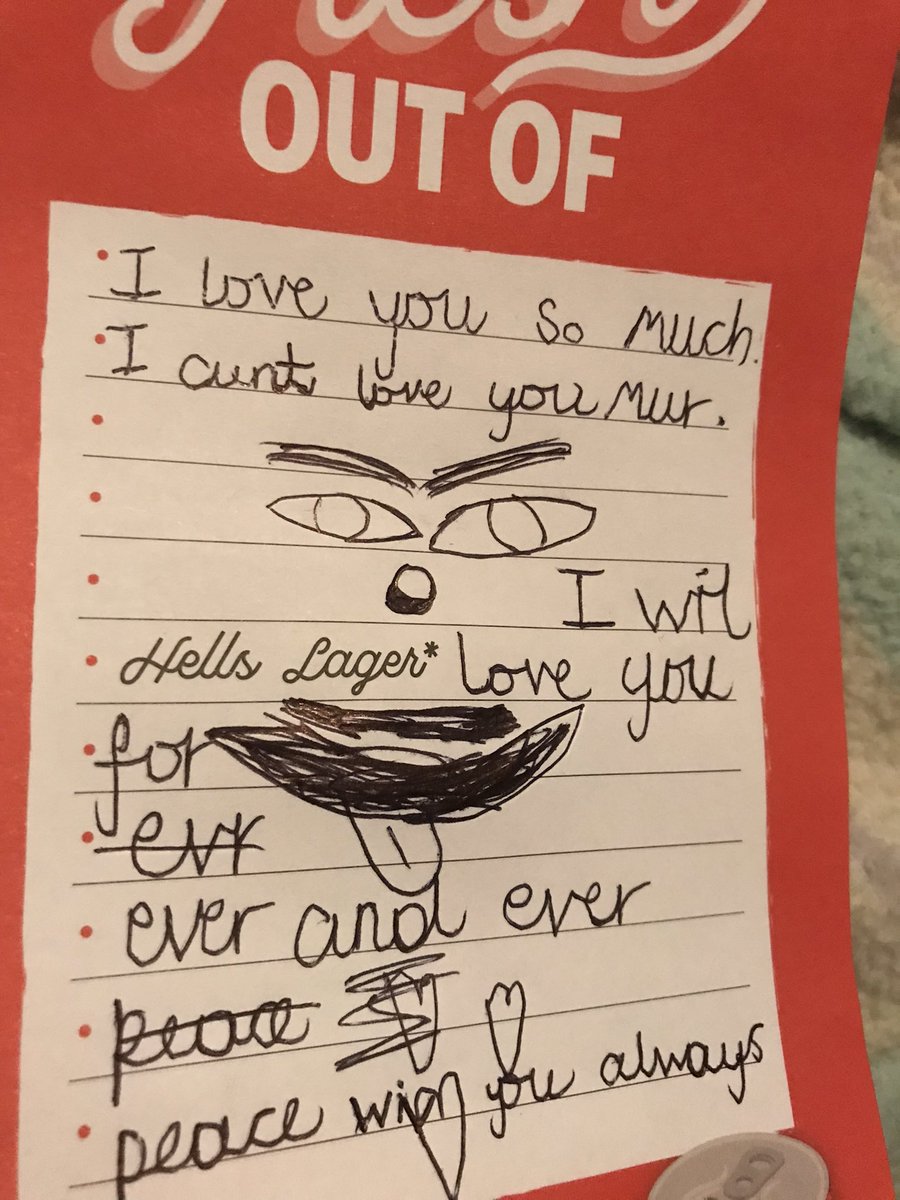 Fresh
OUT OF
I love you so much.
I cunt love you mur.
I wil
Hells Lager* love you
for
evr
ever and ever
peace
peace with you always